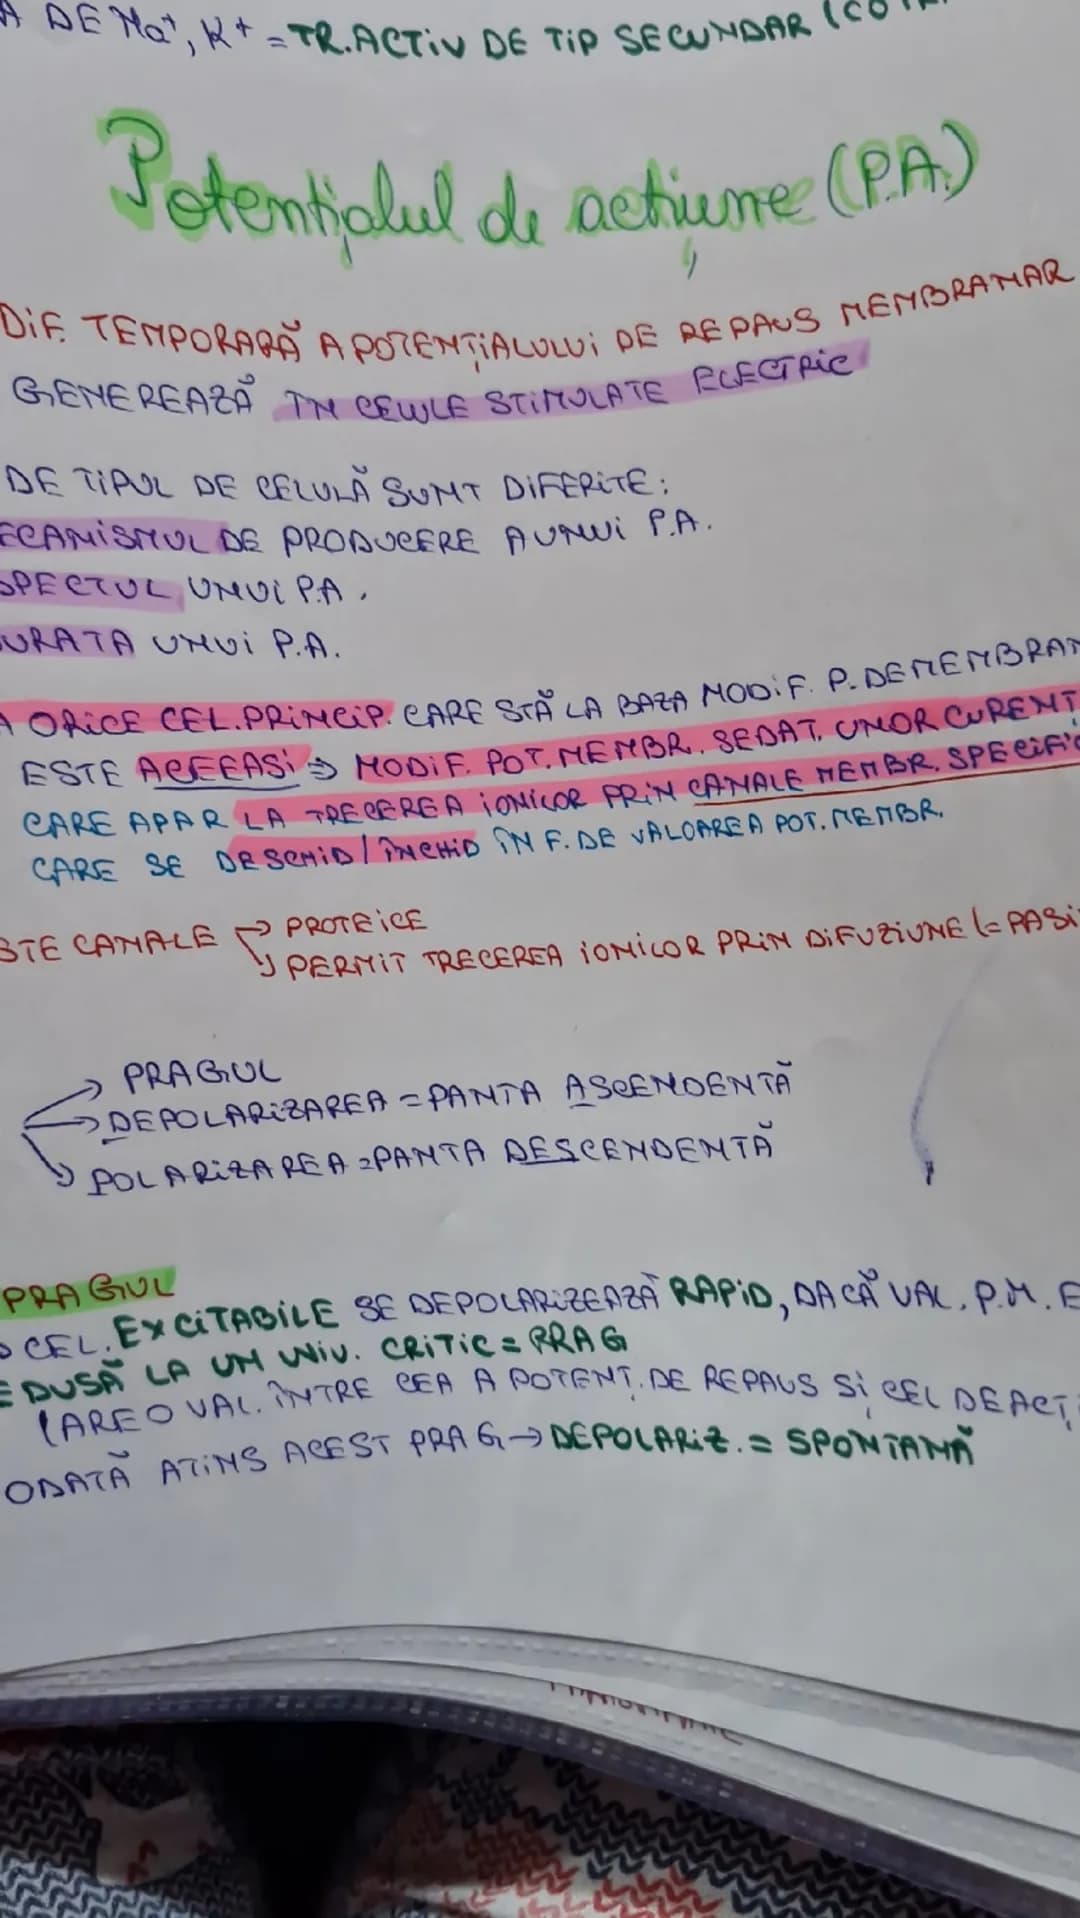 A DE Na+, K+ = TR. ACTIV DE TIP SECUNDAR
Potențialul de acțiune (P.A.)
DIF. TEMPORARĂ A POTENȚIALULUI DE REPAUS MEMBRANAR
GENEREAZĂ ÎN CELULE STIMULATE ELECTRIC
DE TIPUL DE CELULĂ SUNT DIFERITE:
ECANISMUL DE PRODUCERE A UNUI P.A.
SPECTUL UNUI P.A.
URATA UNUI P.A.
A ORICE CEL. PRINCIP. CARE STĂ LA BAZA MODIF. P. DE MEMBRAN
ESTE ACEEASI => MODIF. POT. MEMBR. SE DAT. UNOR CURENT
CARE APAR LA TRECEREA IONILOR PRIN CANALE MEMBR. SPECIFIC
CARE SE DESCHID / ÎNCHID ÎN F. DE VALOAREA POT. MEMBR.
STE CANALE → PROTEICE
↳ PERMIT TRECEREA IONILOR PRIN DIFUZIUNE (= PASI
→ PRAGUL
→ DEPOLARIZAREA = PANTA ASCENDENTĂ
↳ POLARIZAREA = PANTA DESCENDENTĂ
PRAGUL
CEL. EXCITABILE SE DEPOLARIZEAZĂ RAPID, DACĂ VAL. P.M. E
DUSĂ LA UN NIV. CRITIC = PRAG
(ARE O VAL. ÎNTRE CEA A POTENT. DE REPAUS ȘI CEL DE ACȚ
ODATĂ ATINS ACEST PRAG → DEPOLARIZ. = SPONTANĂ